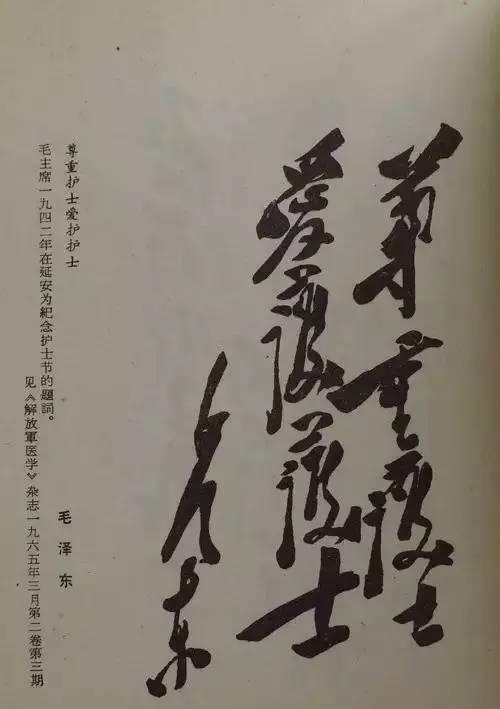 尊重護士
愛護護士
毛澤東
尊重护士爱护护士
毛泽东
毛主席一九四二年在延安为紀念护士节的題詞。
见《解放軍医学》杂志一九六五年三月第二卷第三期